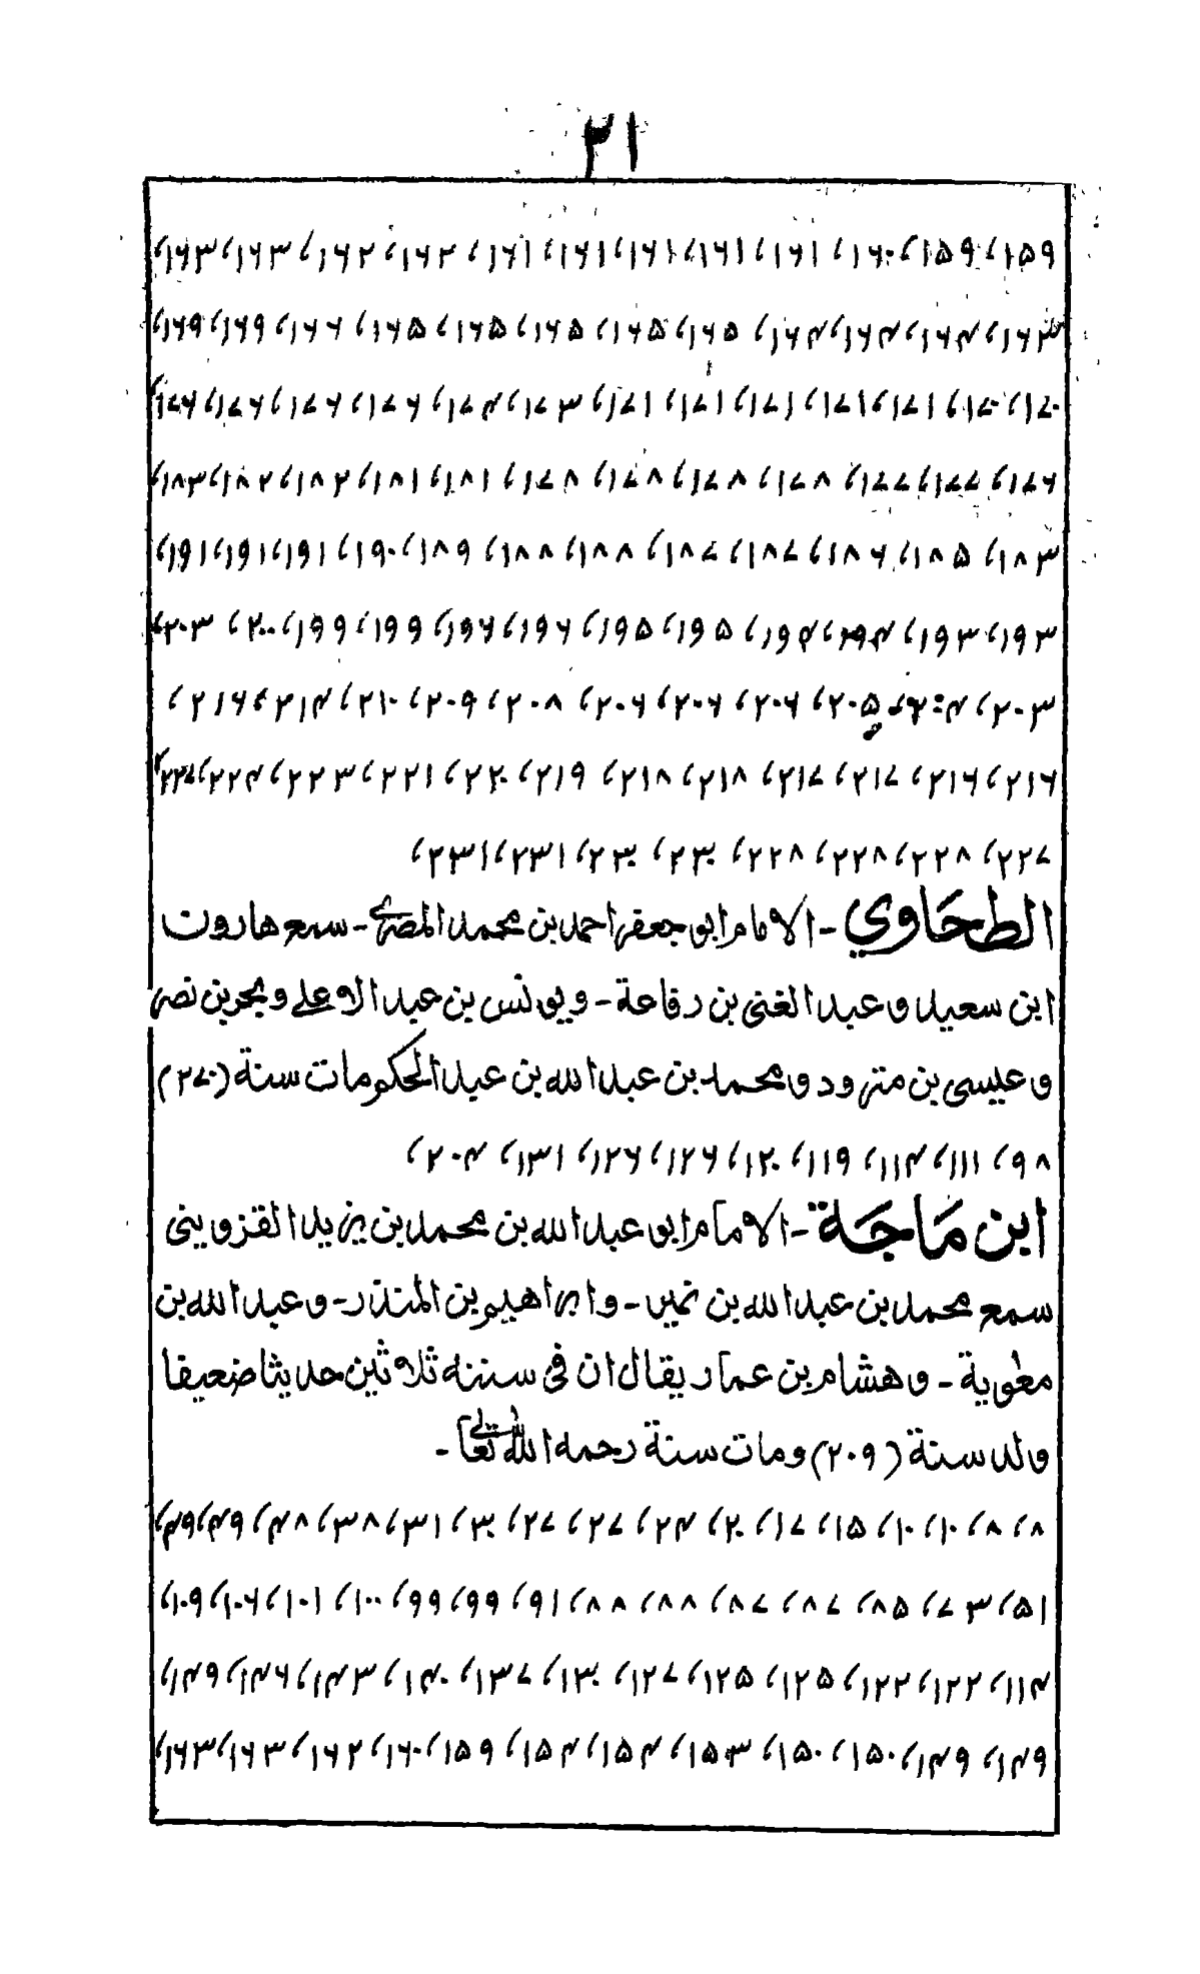 ۲۱
۱۵۹، ۱۵۹، ۱۶۰، ۱۶۱، ۱۶۱، ۱۶۱، ۱۶۱، ۱۶۱، ۱۶۲، ۱۶۲، ۱۶۳، ۱۶۳،
۱۶۳، ۱۶۴، ۱۶۴، ۱۶۴، ۱۶۵، ۱۶۵، ۱۶۵، ۱۶۵، ۱۶۵، ۱۶۶، ۱۶۹، ۱۶۹،
۱۷۰، ۱۷۰، ۱۷۱، ۱۷۱، ۱۷۱، ۱۷۱، ۱۷۱، ۱۷۳، ۱۷۴، ۱۷۶، ۱۷۶، ۱۷۶، ۱۷۶،
۱۷۶، ۱۷۷، ۱۷۷، ۱۷۸، ۱۷۸، ۱۷۸، ۱۷۸، ۱۸۱، ۱۸۱، ۱۸۲، ۱۸۲، ۱۸۳،
۱۸۳، ۱۸۵، ۱۸۶، ۱۸۷، ۱۸۷، ۱۸۸، ۱۸۸، ۱۸۹، ۱۹۰، ۱۹۱، ۱۹۱، ۱۹۱،
۱۹۳، ۱۹۳، ۱۹۴، ۱۹۴، ۱۹۵، ۱۹۵، ۱۹۶، ۱۹۶، ۱۹۹، ۱۹۹، ۲۰۰، ۲۰۳،
۲۰۳، ۲۰۴، ۲۰۵، ۲۰۶، ۲۰۶، ۲۰۶، ۲۰۸، ۲۰۹، ۲۱۰، ۲۱۴، ۲۱۶،
۲۱۶، ۲۱۶، ۲۱۷، ۲۱۷، ۲۱۸، ۲۱۸، ۲۱۹، ۲۲۰، ۲۲۱، ۲۲۳، ۲۲۴، ۲۲۷،
۲۲۷، ۲۲۸، ۲۲۸، ۲۲۸، ۲۳۰، ۲۳۰، ۲۳۱، ۲۳۱،
الطحَاوي - الامام ابو جعفر احمد بن محمد المصری - سمع هارون
ابن سعید و عبد الغنی بن رفاعة - و یونس بن عبد الاعلے و بحر بن نصر
و عیسی بن مثرود و محمد بن عبد الله بن عبد الحکم ومات سنة (۲۷۰)
۹۸، ۱۱۱، ۱۱۴، ۱۱۹، ۱۲۰، ۱۲۶، ۱۲۶، ۱۳۱، ۲۰۴،
ابن مَاجَة - الامام ابو عبد الله بن محمد بن یزید القزوینی
سمع محمد بن عبد الله بن نمیر - و ابراهیم بن المنذر - و عبد الله بن
معٰویة - و هشام بن عمار یقال ان فی سننه ثلاثین حدیثا ضعیفا
ولد سنة (۲۰۹) ومات سنة رحمه الله تعالٰی -
۸، ۸، ۱۰، ۱۰، ۱۵، ۱۷، ۲۰، ۲۴، ۲۷، ۲۷، ۳۰، ۳۱، ۳۸، ۴۸، ۴۹، ۴۹،
۵۱، ۷۳، ۸۵، ۸۷، ۸۷، ۸۸، ۸۸، ۹۱، ۹۹، ۹۹، ۱۰۰، ۱۰۱، ۱۰۶، ۱۰۹،
۱۱۴، ۱۲۲، ۱۲۲، ۱۲۵، ۱۲۵، ۱۲۷، ۱۳۰، ۱۳۷، ۱۴۰، ۱۴۳، ۱۴۶، ۱۴۹،
۱۴۹، ۱۴۹، ۱۵۰، ۱۵۰، ۱۵۳، ۱۵۴، ۱۵۴، ۱۵۹، ۱۶۰، ۱۶۲، ۱۶۳، ۱۶۳،